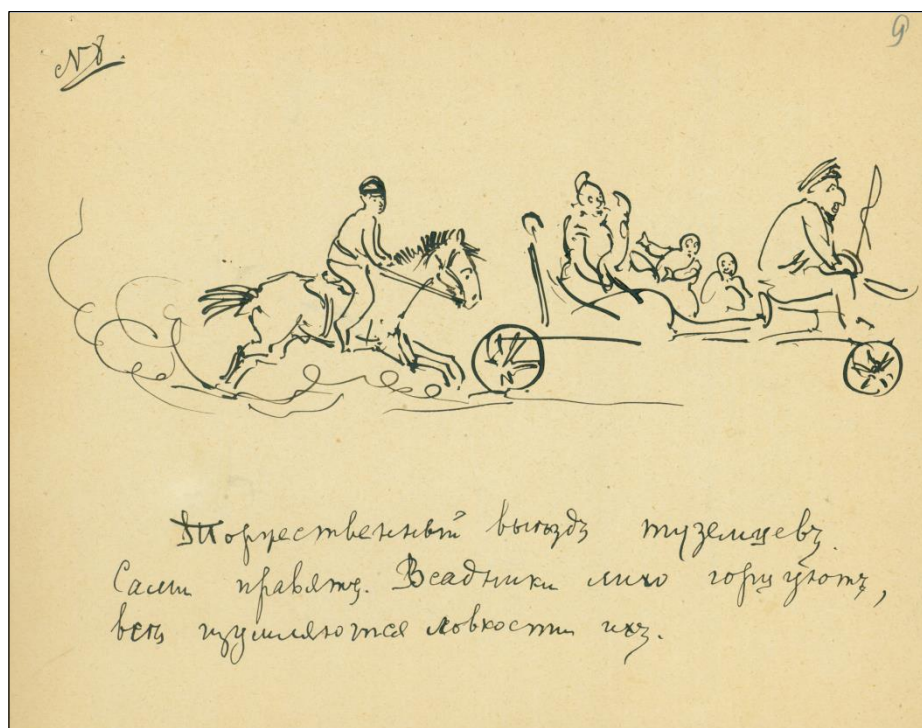 N 8.
9
Торжественный выѣздъ туземцевъ.
Сами правятъ. Всадники лихо горцуютъ,
всѣ изумляются ловкости ихъ.